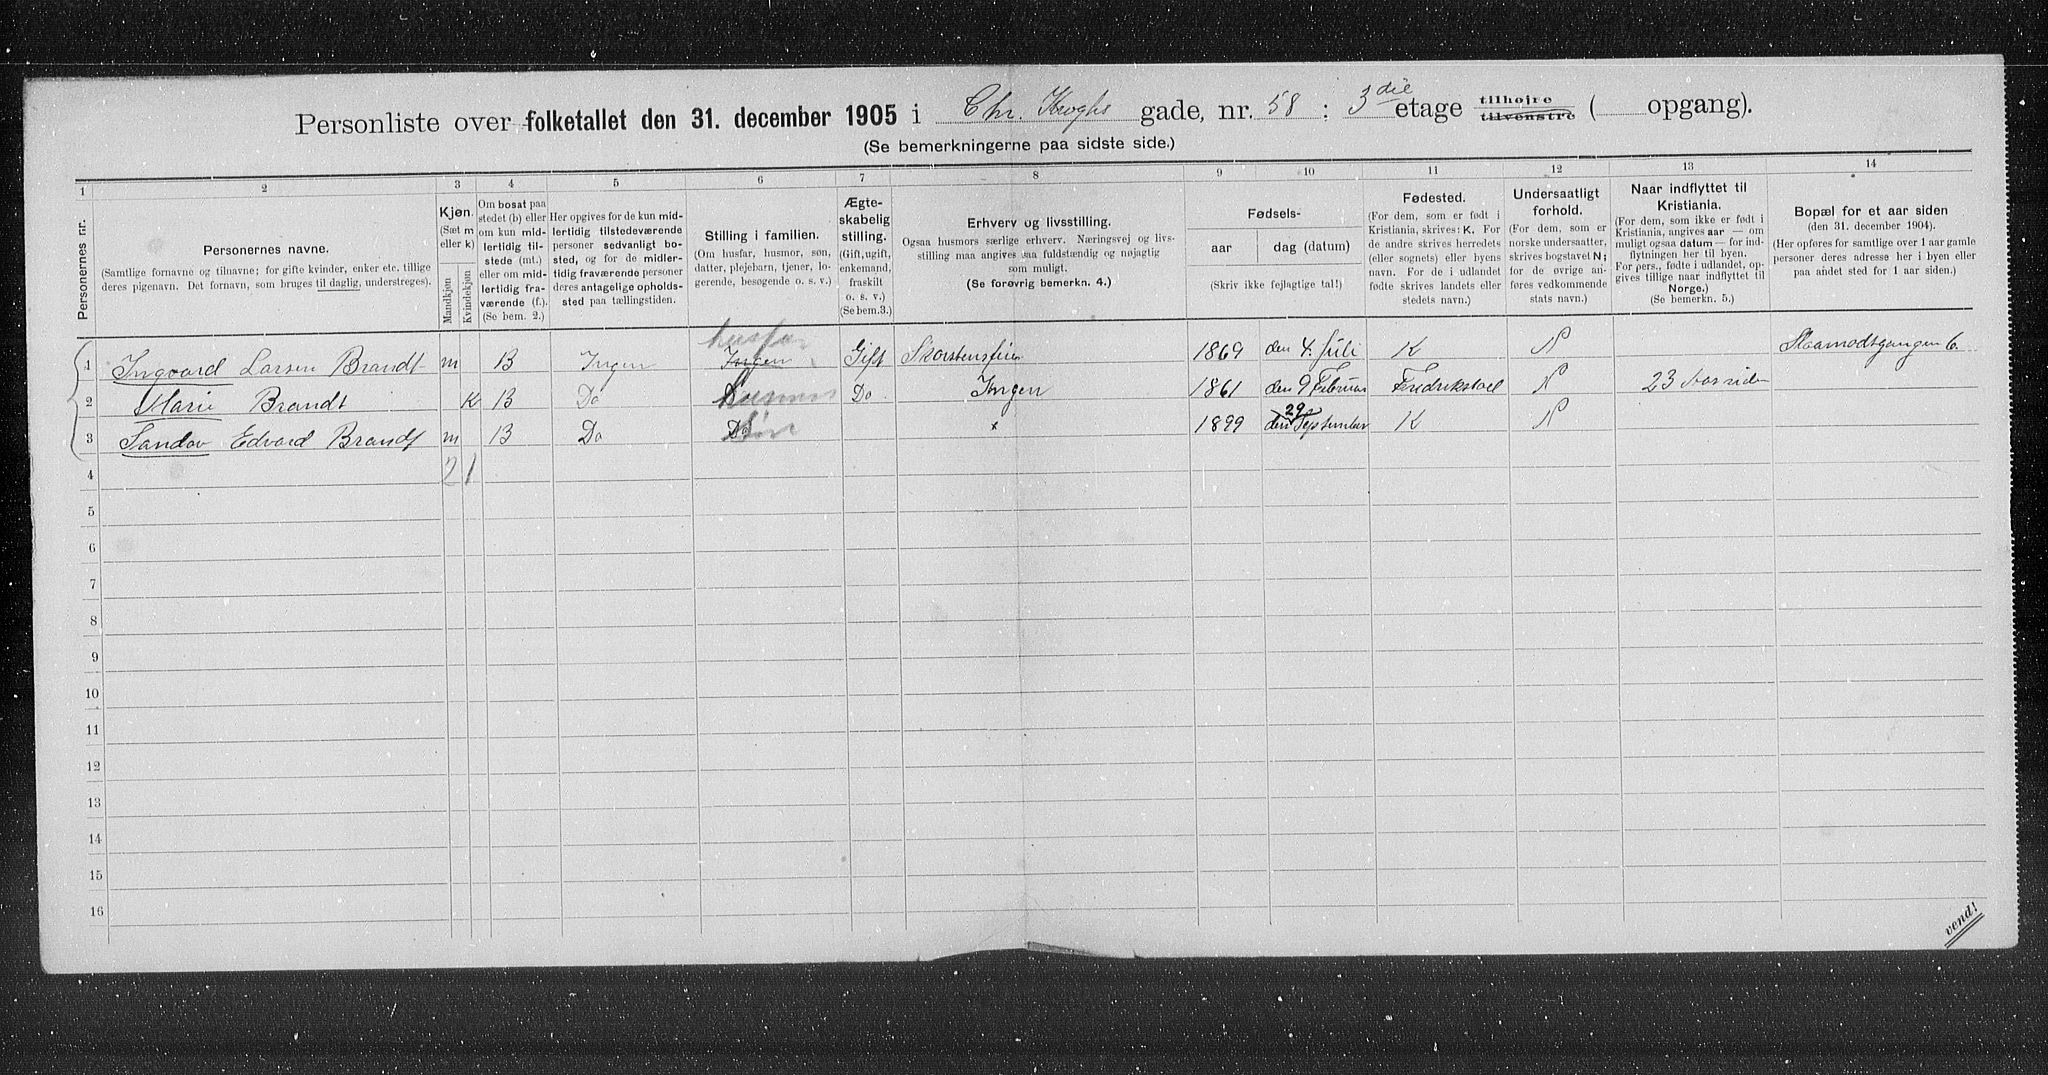 Personliste over folketallet den 31. december 1905 i Chr. Kroghs gade, nr. 58 : 3 die etage tilhøjre tilvenstre ( opgang).
(Se bemerkningerne paa sidste side.)
1 2 3 4 5 6 7 8 9 10 11 12 13 14
Personernes nr.
Personernes navne.
(Samtlige fornavne og tilnavne; for gifte kvinder, enker etc. tillige
deres pigenavn. Det fornavn, som bruges til daglig, understreges).
Kjøn.
(Sæt m
eller k)
Mandkjøn
Kvindekjøn
Om bosat paa
stedet (b) eller
om kun mid-
lertidig til-
stede (mt.)
eller om mid-
lertidig fra-
værende (f.).
(Se bem. 2.)
Her opgives for de kun mid-
lertidig tilstedeværende
personer sedvanligt bo-
sted, og for de midler-
tidig fraværende personer
deres antagelige opholds-
sted paa tællingstiden.
Stilling i familien.
(Om husfar, husmor, søn,
datter, plejebarn, tjener, lo-
gerende, besøgende o. s. v.)
Ægte-
skabelig
stilling.
(Gift, ugift,
enkemand,
fraskilt
o. s. v.)
(Se bem.3.)
Erhverv og livsstilling.
Ogsaa husmors særlige erhverv. Næringsvej og livs-
stilling maa angives saa fuldstændig og nøjagtig
som muligt.
(Se forøvrig bemerkn. 4.)
Fødsels-
aar dag (datum)
(Skriv ikke fejlagtige tal!)
Fødested.
(For dem, som er født i
Kristiania, skrives: K. For
de andre skrives herredets
(eller sognets) eller byens
navn. For de i udlandet
fødte skrives landets eller
stedets navn.)
Undersaatligt
forhold.
(For dem, som er
norske undersaatter,
skrives bogstavet N;
for de øvrige an-
føres vedkommende
stats navn.)
Naar indflyttet til
Kristiania.
(For dem, som ikke er født i
Kristiania, angives aar — om
muligt ogsaa datum — for ind-
flytningen her til byen.
For pers., fødte i udlandet, op-
gives tillige naar indflyttet til
Norge.)
(Se bemerkn. 5.)
Bopæl for et aar siden
(den 31. december 1904).
(Her opføres for samtlige over 1 aar gamle
personer deres adresse her i byen eller
paa andet sted for 1 aar siden.)
husfar
1 Ingvard Larsen Brandt m B Ingen Ingen Gift Skorstensfeier 1869 den 4. Juli K N 6.
2 Marie Brandt K B Do Husmor Do Ingen 1861 den 9 Februar Fredrikstad N 23 Aar siden
3 Sandov Edvard Brandt m B Do Do Søn 1899 den 29 September K N
4 2 1
5
6
7
8
9
10
11
12
13
14
15
16
vend!